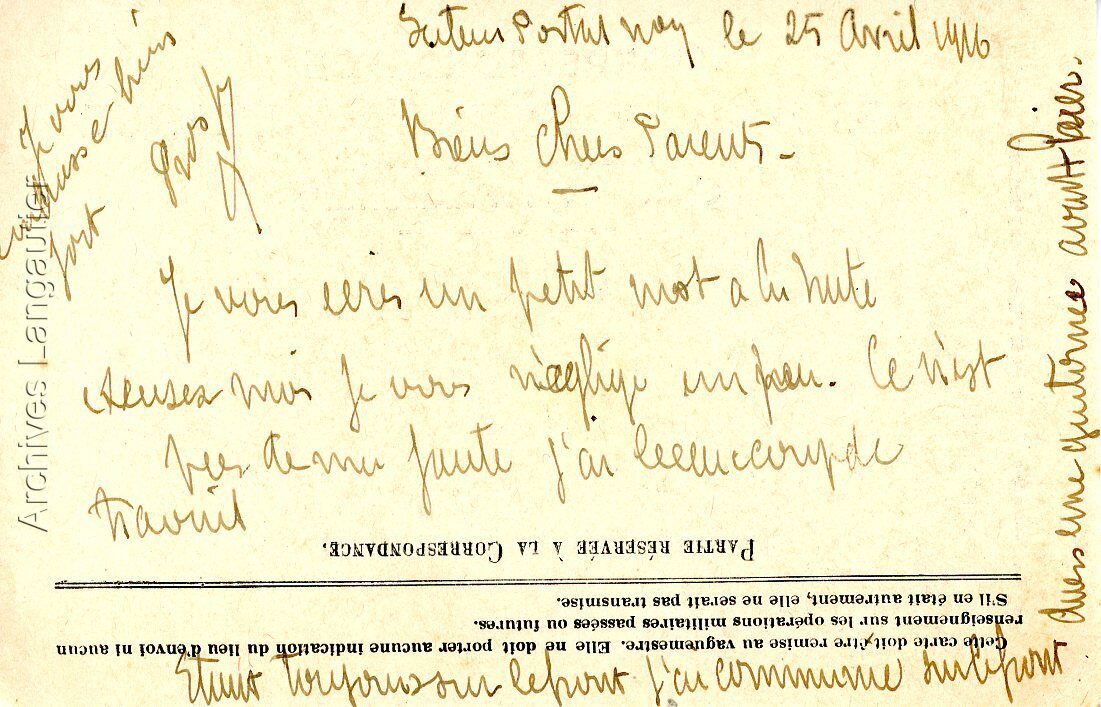 le 25 Avril 1916
Biens Chers Parents -
Je vous ecris un petit mot a la hate
excusez moi je vous néglige un peu. Ce n'est
pas de ma faute j'ai beaucoup de
travail
Etant toujours sur le front j'ai communié sur le front
dans une avant hier.
Je vous embrasse bien
fort
Archives Langautier
PARTIE RÉSERVÉE À LA CORRESPONDANCE.
Cette carte doit être remise au vaguemestre. Elle ne doit porter aucune indication du lieu d'envoi ni aucun
renseignement sur les opérations militaires passées ou futures.
S'il en était autrement, elle ne serait pas transmise.